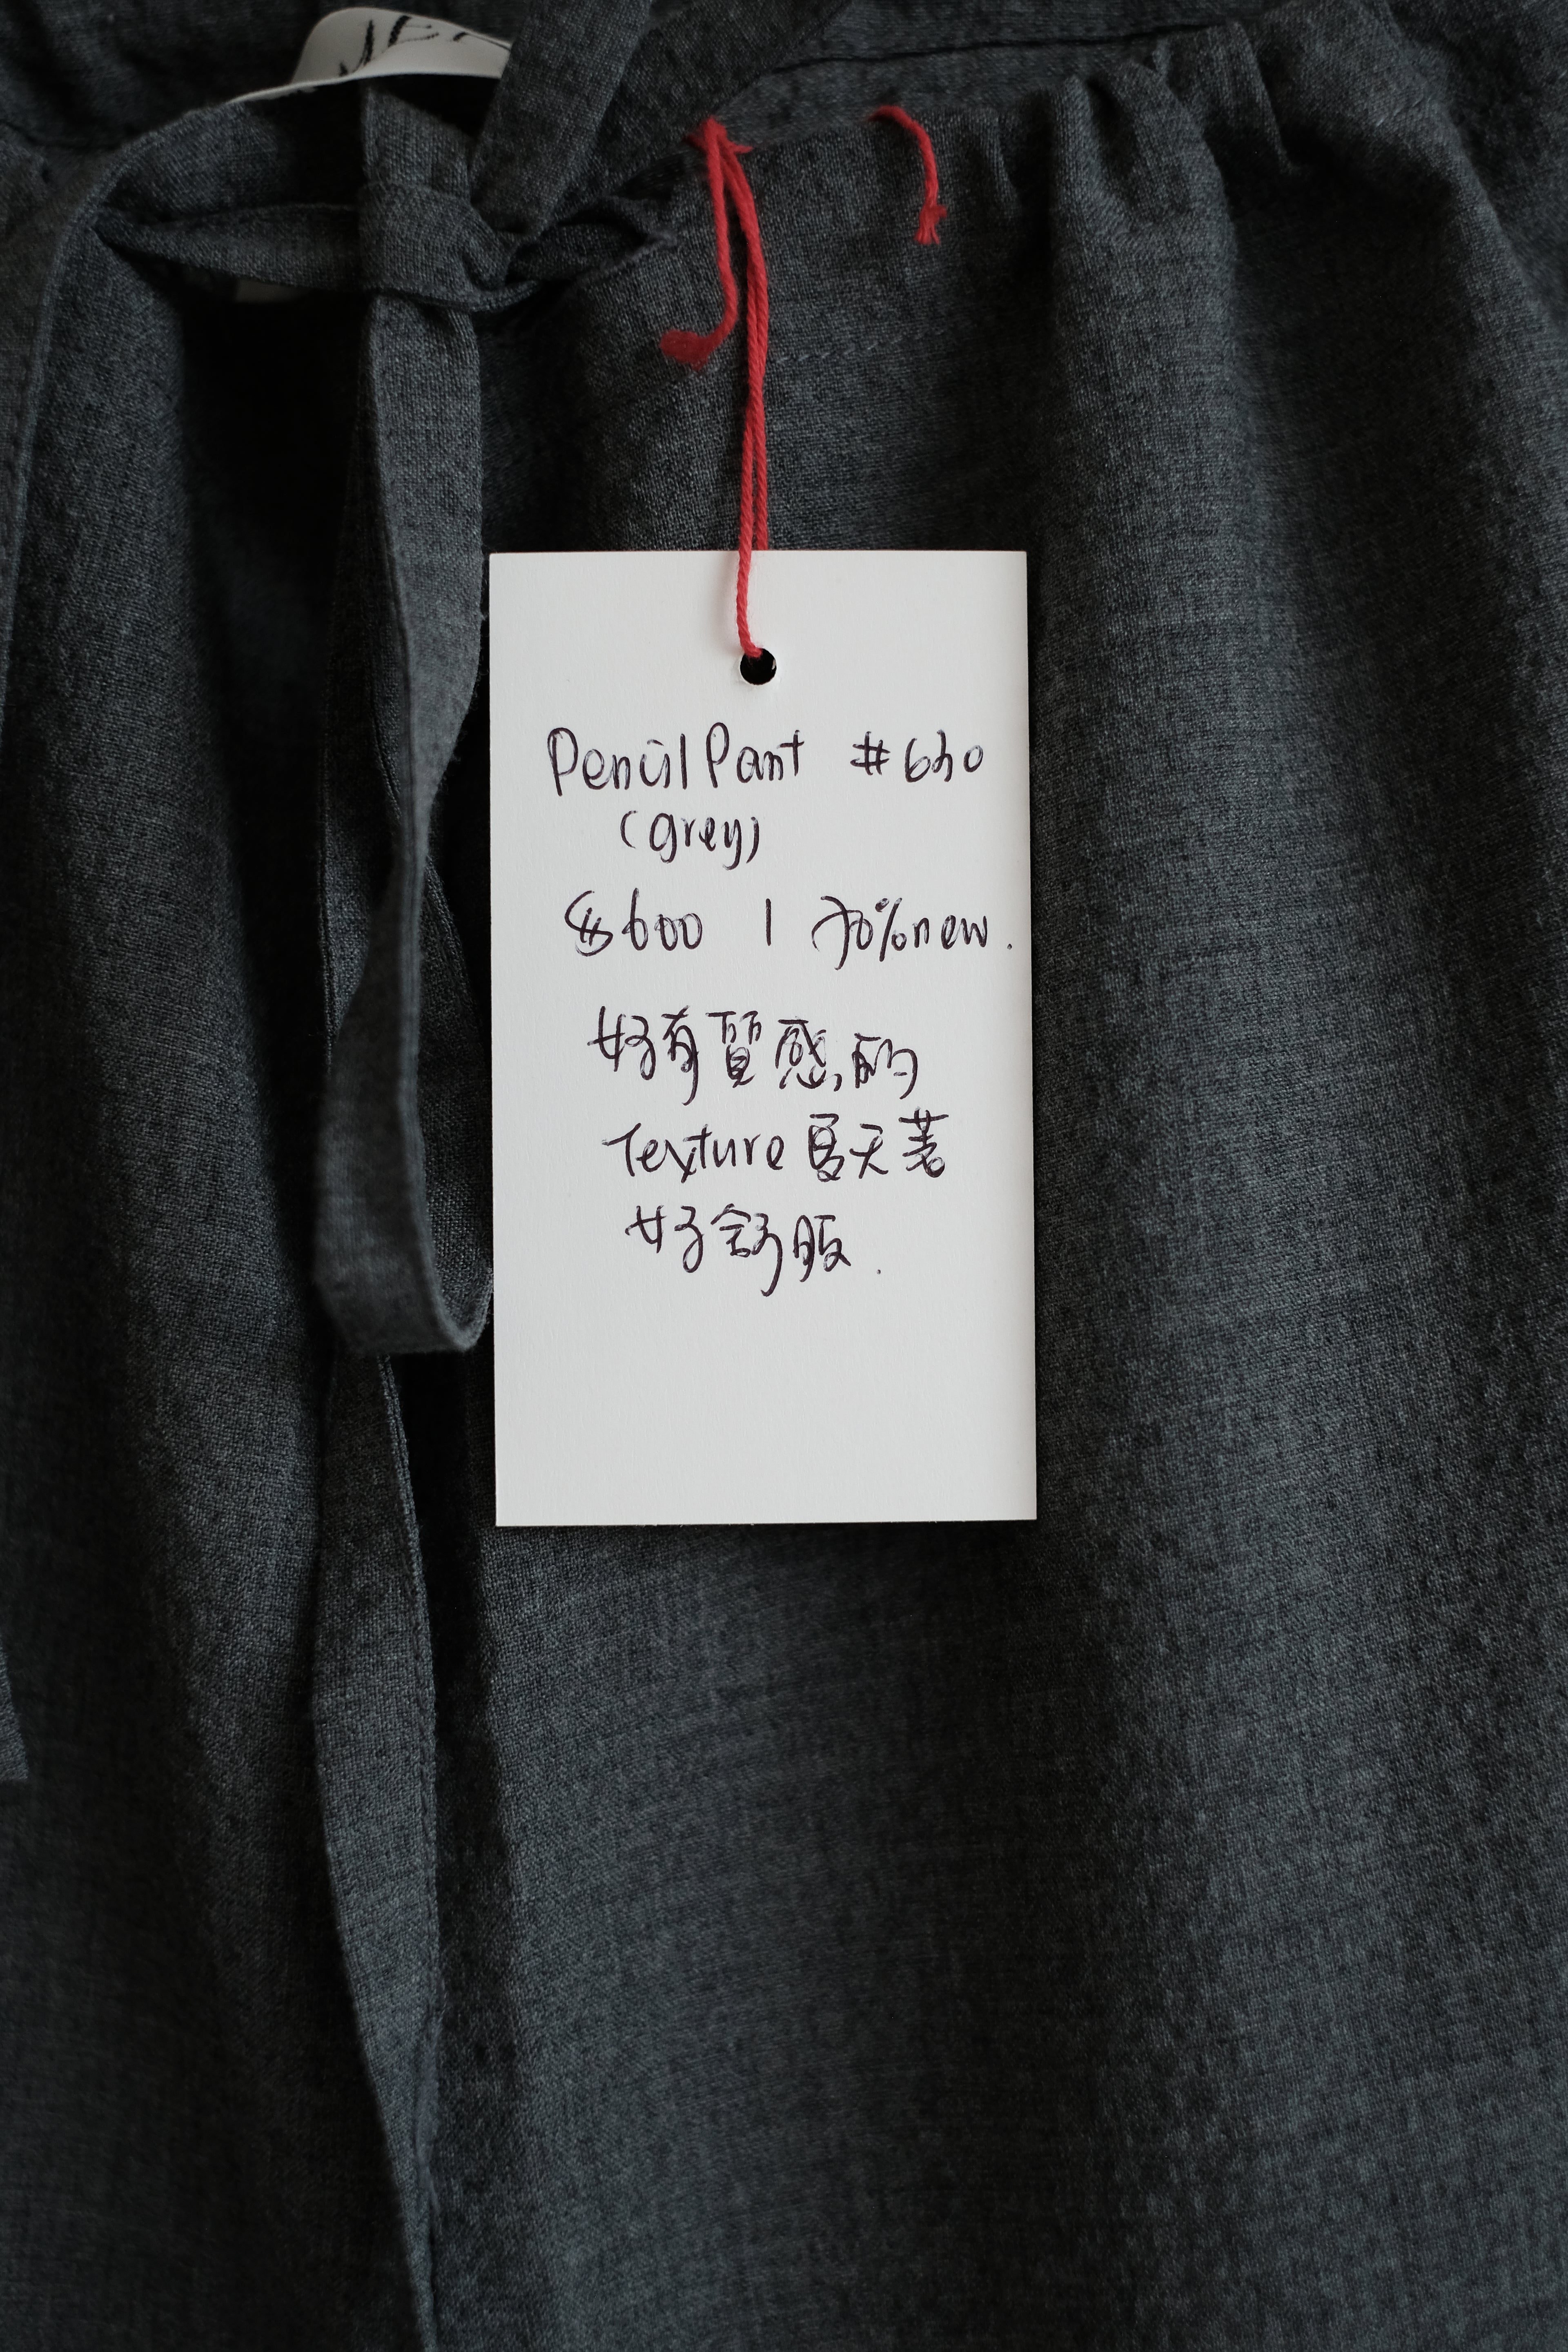 Pencil Pant #630
(grey)
$600 | 70% new.
好有質感的
Texture 夏天著
好舒服.